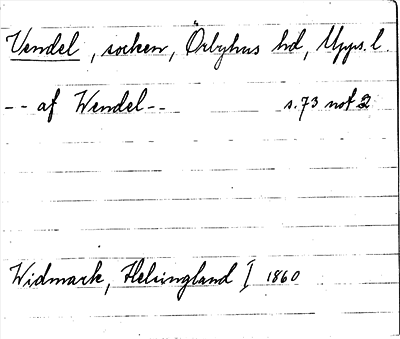 Vendel, socken, Örbyhus hd, Upps. l.
-- af Wendel -- s. 73 not 2
Widmark, Helsingland I 1860